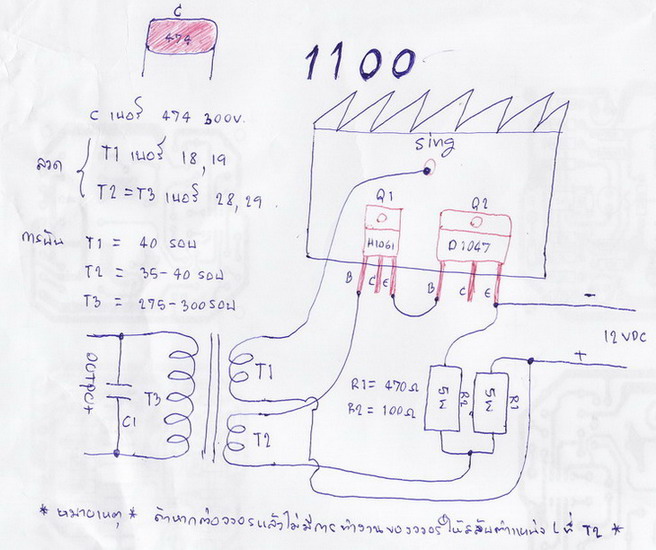 C
474
1100
C เบอร์ 474 300V.
ลวด
T1 เบอร์ 18, 19
T2 = T3 เบอร์ 28, 29
การพัน
T1 = 40 รอบ
T2 = 35-40 รอบ
T3 = 275-300 รอบ
sing
Q1
Q2
H1061
D1047
B C E
B C E
-
12 VDC
+
OUTPUT
C1
T3
T1
T2
R1 = 470Ω
R2 = 100Ω
5W
R2
5W
R1
* หมายเหตุ * ถ้าหากต่อวงจรแล้วไม่มีการทำงานของวงจร ให้สลับตำแหน่ง L ที่ T2 *